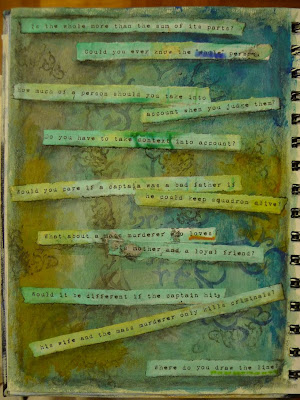 Is the whole more than the sum of its parts?
Could you ever know the "whole" person
How much of a person should you take into
account when you judge them?
Do you have to take context into account?
Would you care if a captain was a bad father if
he could keep squadron alive?
What about a mass murderer who loves
mother and a loyal friend?
Would it be different if the captain hit
his wife and the mass murderer only kills criminals?
Where do you draw the line